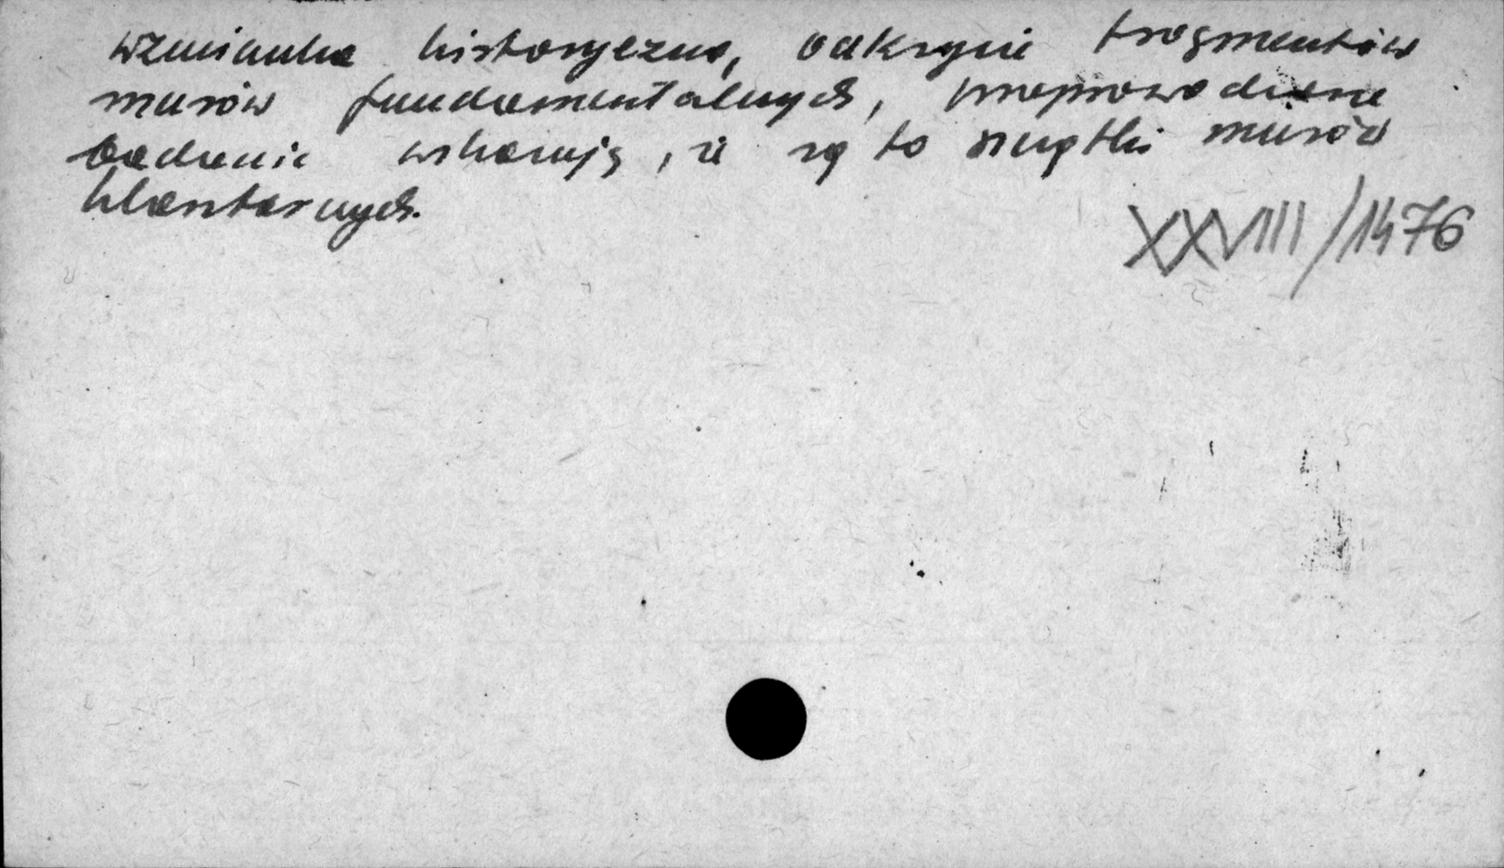 wzmianka historyczna, odkrycie fragmentów
murów fundamentalnych, przeprowadzone
badania wskazują, iż są to resztki murów
klasztornych.
XXVIII/1476